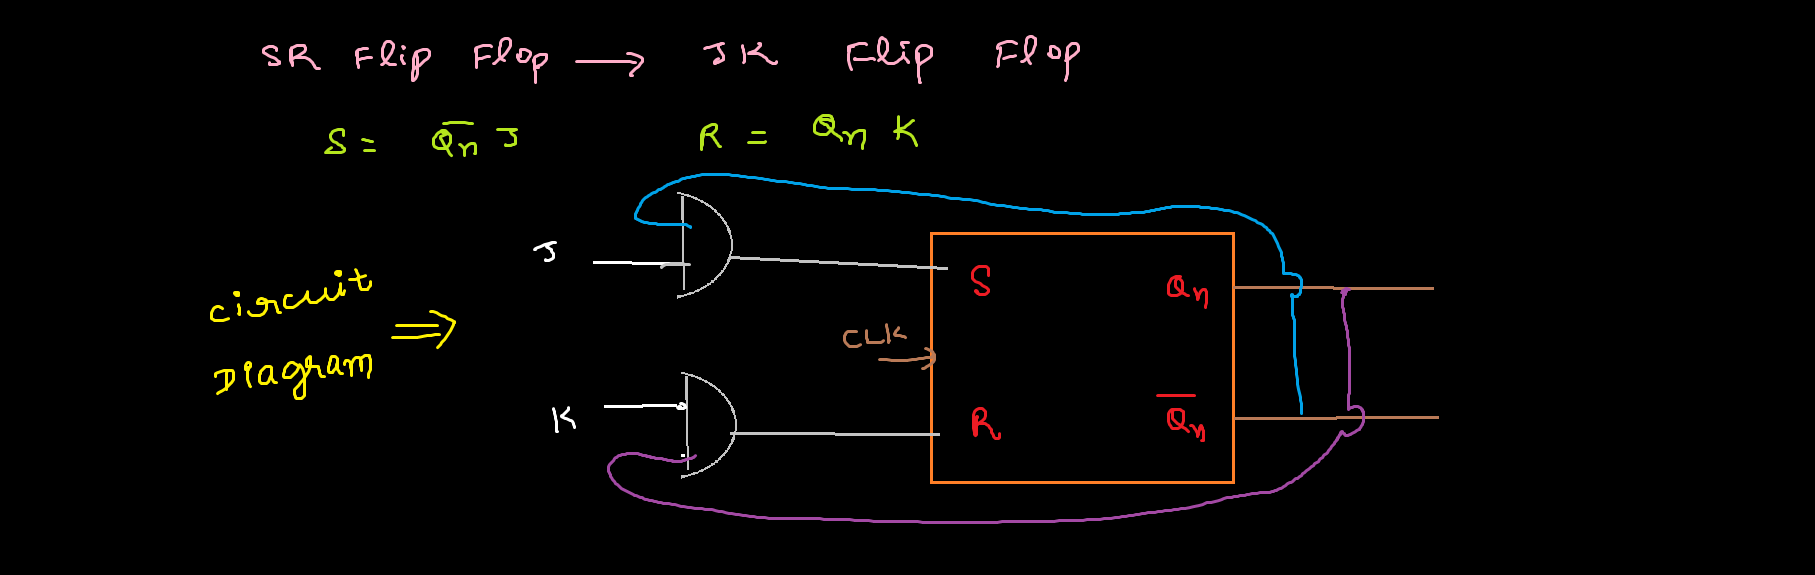 SR Flip Flop → JK Flip Flop
S = Q̅n J R = Qn K
J
S
Qn
circuit
Diagram ⇒
CLK
K
R
Q̅n